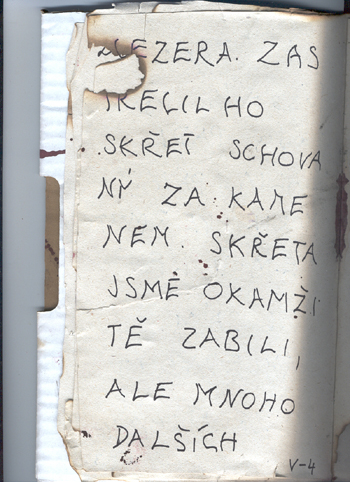 ZAS
HO
SKŘET SCHOVA
NÝ ZA KAME
NEM. SKŘETA
JSME OKAMŽI
TĚ ZABILI,
ALE MNOHO
DALŠÍCH
V-4